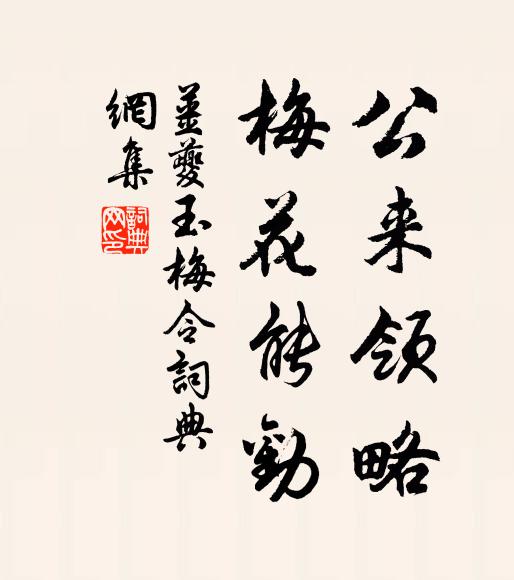 公来領略
梅花能勸
姜夔玉梅令詞典
網集
詞典網印